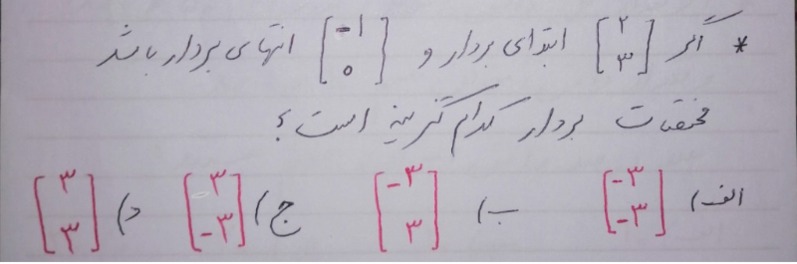 * اگر [۲ ۳] ابتدای بردار و [-۱ ۰] انتهای بردار باشد
مختصات بردار کدام گزینه است؟
الف) [-۳ -۳] ب) [-۳ ۳] ج) [۳ -۳] د) [۳ ۳]